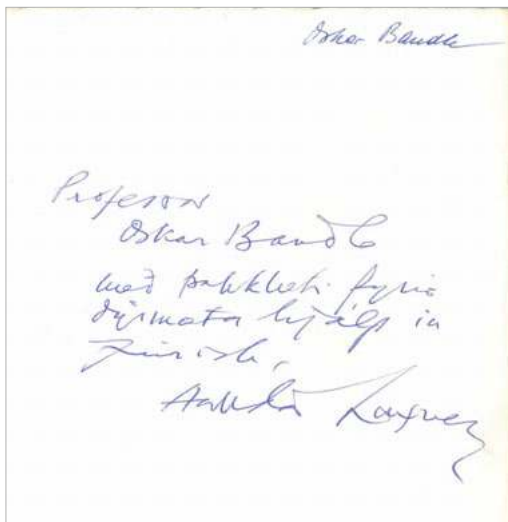 Oskar Bandle
Professor
Oskar Bandle
með þakklæti fyrir
dýrmæta hjálp in
Zürich,
Halldór Laxness